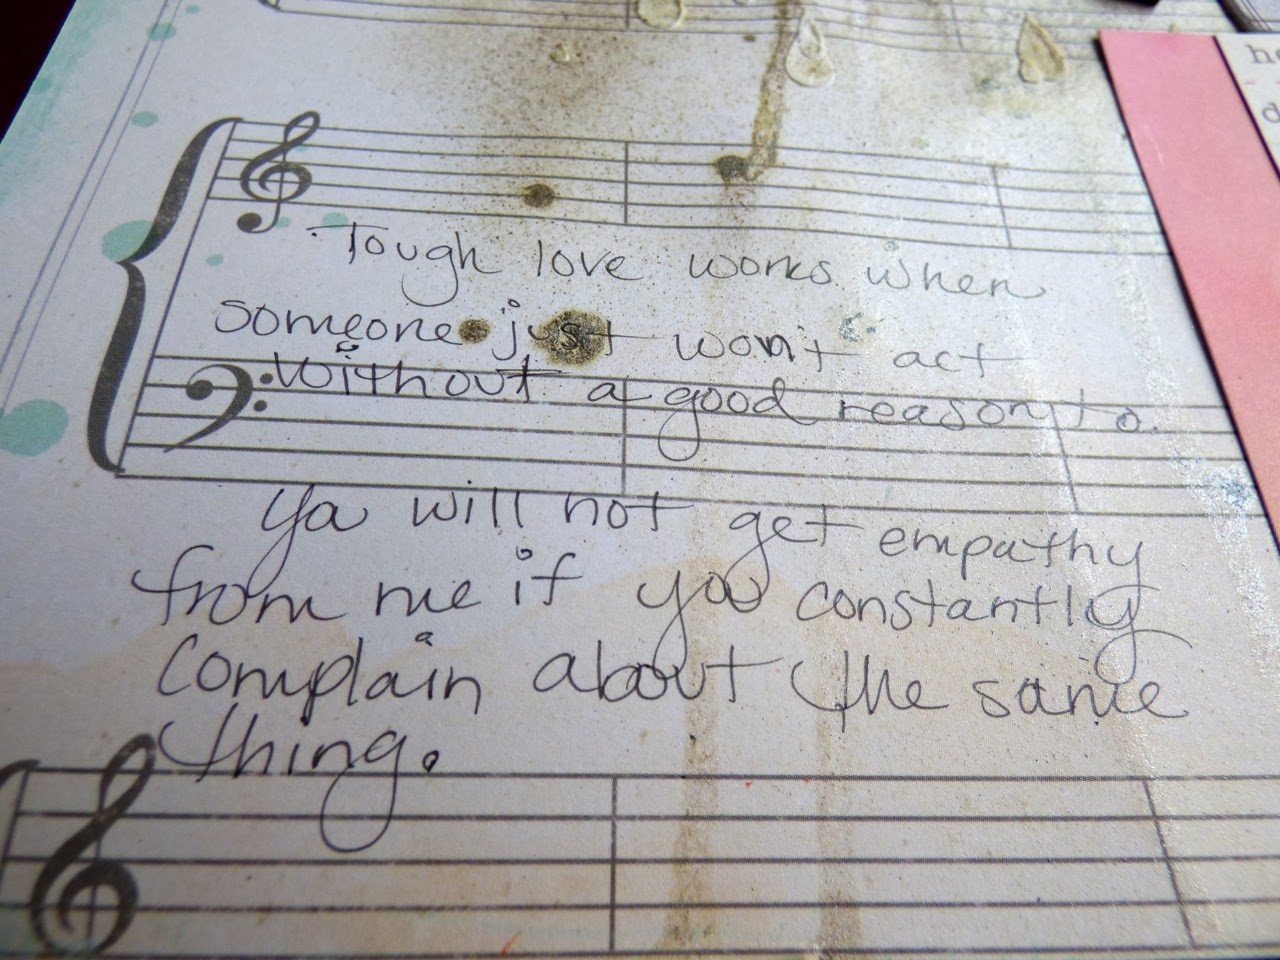 Tough love works when
someone just won't act
without a good reason to.
Ya will not get empathy
from me if you constantly
complain about the same
thing.